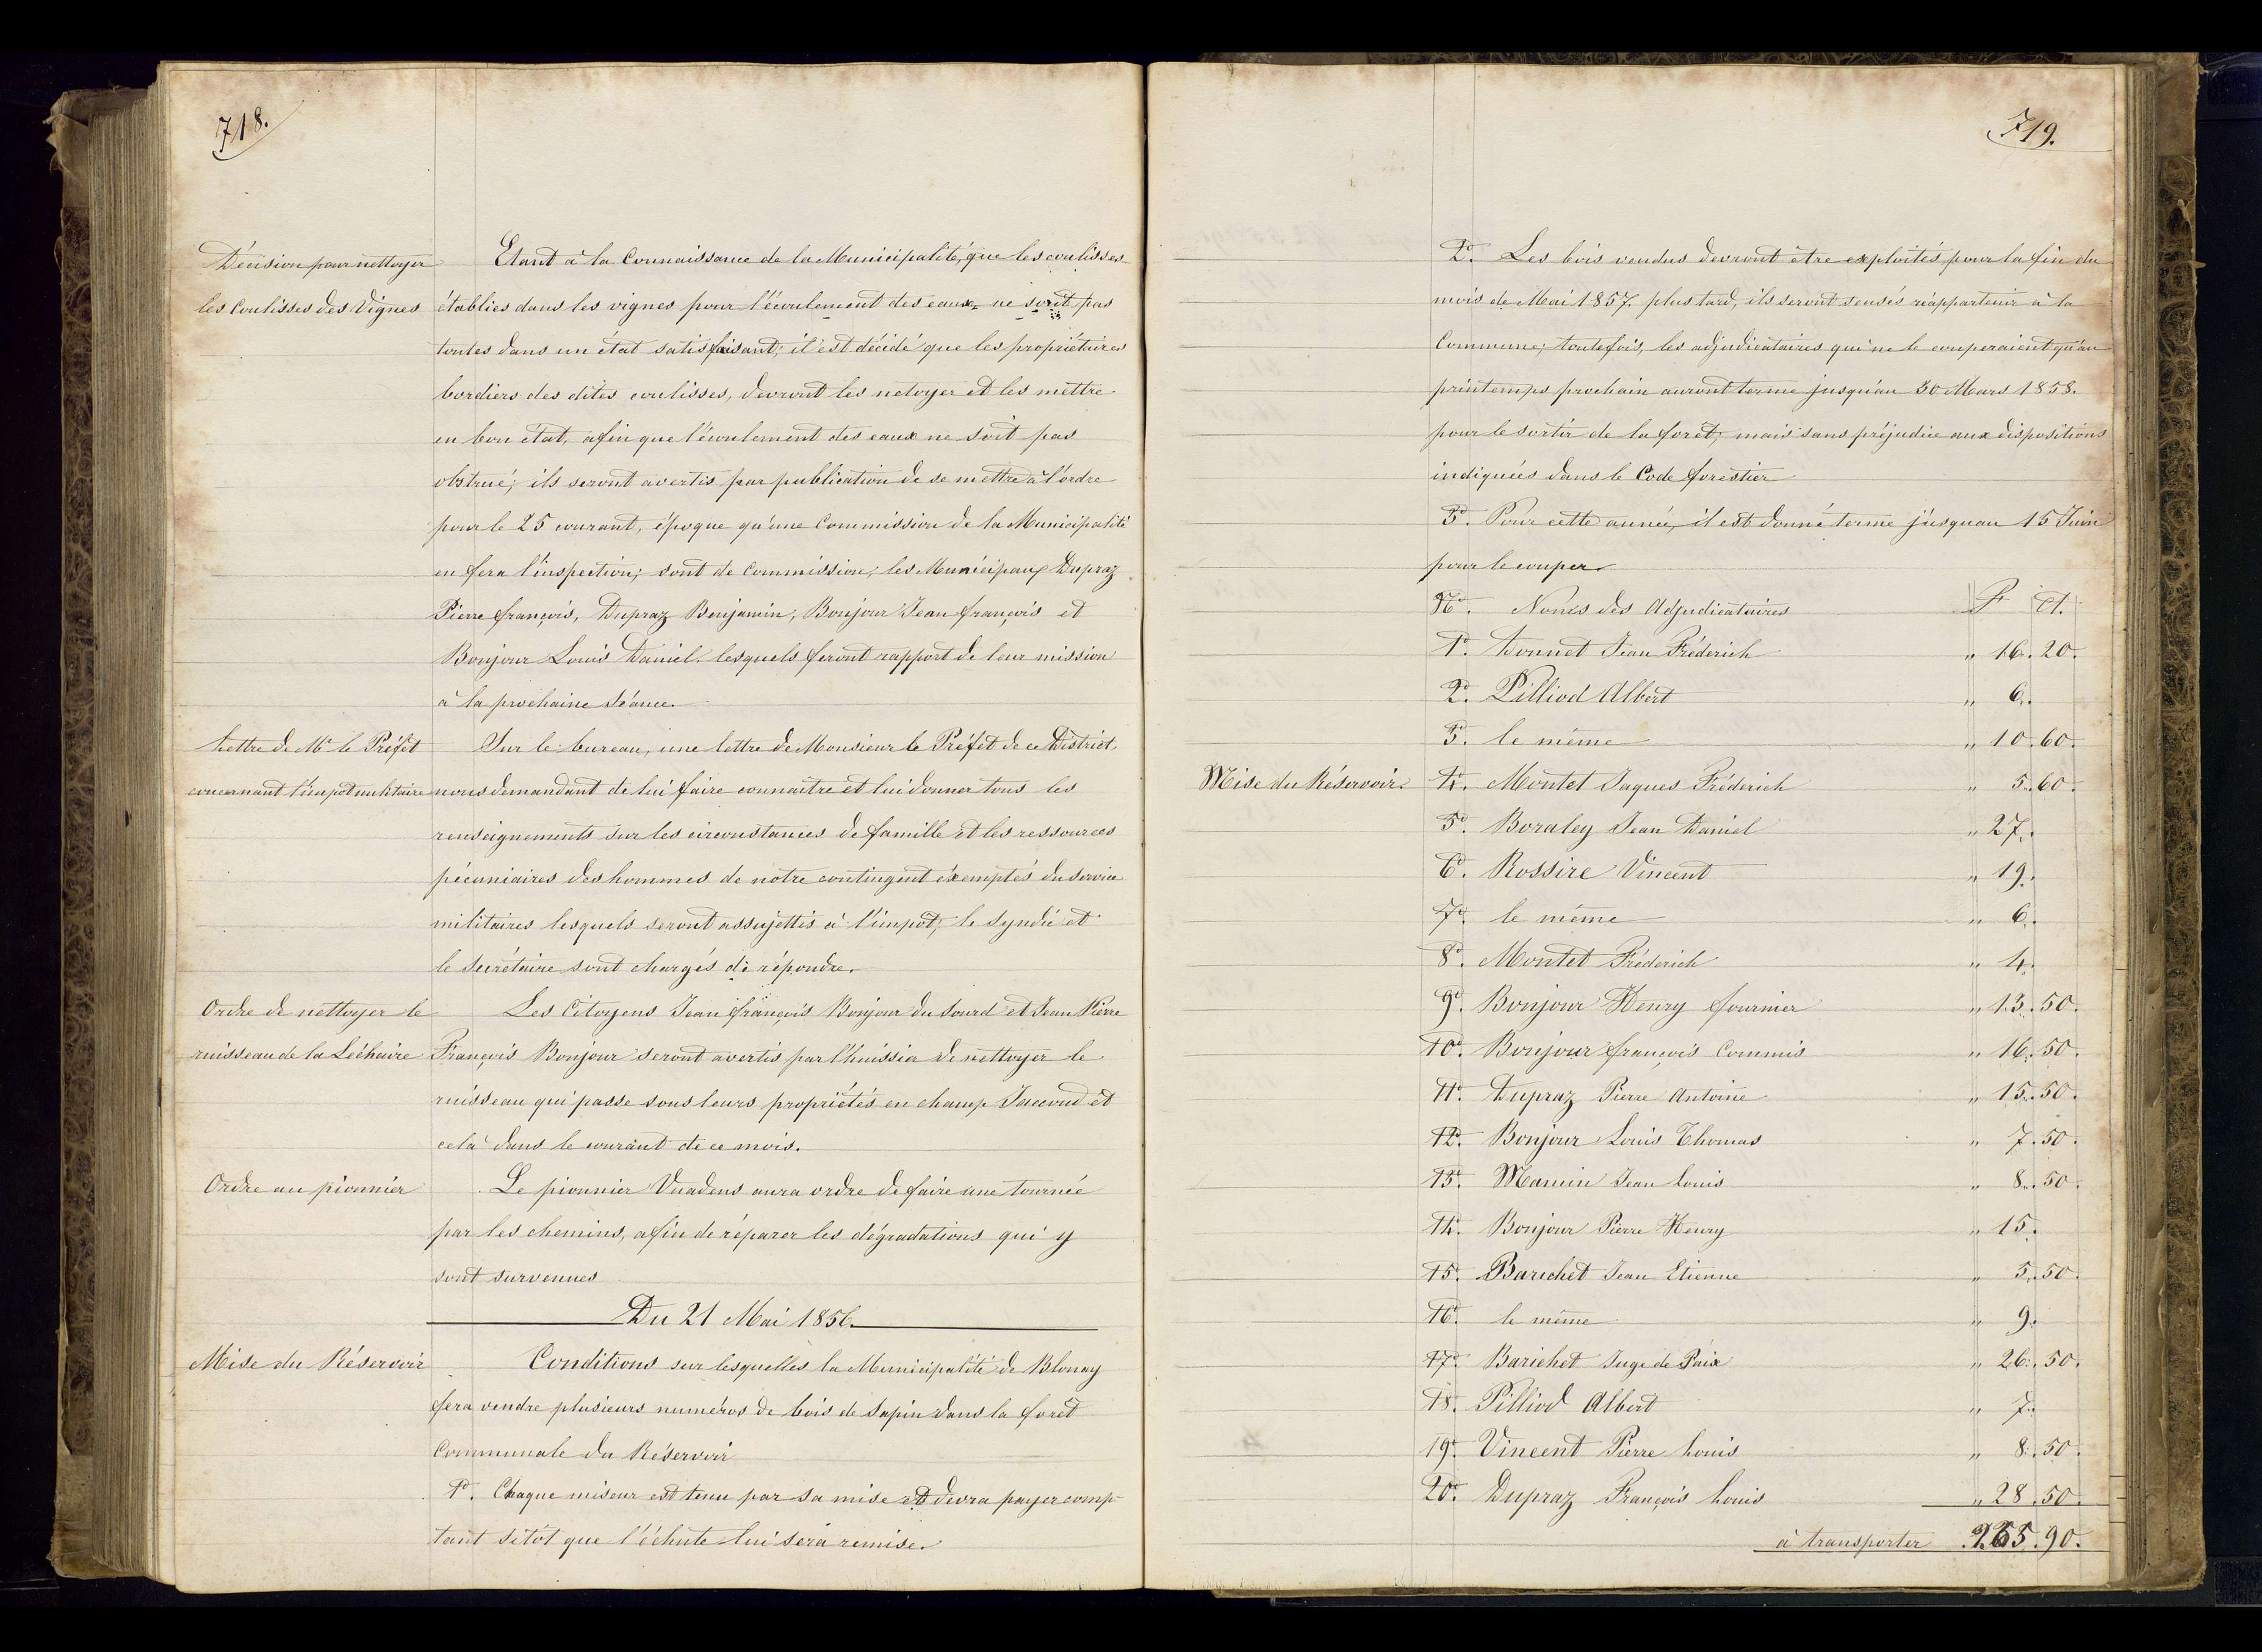 718.
Décision pour nettoyer
les Coulisses des Vignes
Etant à la Connaissance de la Municipalité, que les coulisses
établies dans les vignes pour l'écoulement des eaux, ne sont pas
toutes dans un état satisfaisant; il est décidé que les propriétaires
bordiers des dites coulisses, devront les netoyer et les mettre
en bon état, afin que l'écoulement des eaux ne soit pas
obstrué; ils seront avertis par publication de se mettre à l'ordre
pour le 25 courant, époque qu'une Commission de la Municipalité
en fera l'inspection; sont de Commission; les Municipaux Dupraz
Pierre françois, Dupraz Benjamin, Bonjour Jean françois et
Bonjour Louis Daniel. lesquels feront rapport de leur mission
à la prochaine Séance.
Lettre de Mr le Préfet
concernant l'impot militaire
Sur le bureau, une lettre de Monsieur le Préfet de ce District,
nous demandant de lui faire connaitre et lui donner tous les
renseignements sur les circonstances de famille et les ressources
pécuniaires des hommes de notre contingent éxemptés du service
militaires lesquels seront assujettis à l'impôt; le Syndic et
le Secrétaire sont chargés de répondre.
Ordre de nettoyer le
ruisseau de la Léchaire
Les Citoyens Jean françois Bonjour du Sourd et Jean Pierre
François Bonjour seront avertis par l'huissier de nettoyer le
ruisseau qui passe sous leurs propriétés en champ Jaccoud et
cela dans le courant de ce mois.
Ordre au pionnier
Le pionnier Vuadens aura ordre de faire une tournée
par les chemins, afin de réparer les dégradations qui y
sont survenues
Du 21 Mai 1856.
Mise du Réservoir
Conditions sur lesquelles la Municipalité de Blonay
fera vendre plusieurs numéros de bois de Sapin dans la forêt
Communale du Réservoir
1o. Chaque miseur est tenu par sa mise et devra payer comp-
tant sitôt que l'échute lui sera remise.
719.
2o. Les bois vendus devront être exploités pour la fin du
mois de Mai 1857. plus tard, ils seront sensés réappartenir à la
Commune; toutefois, les adjudicataires qui ne le couperaient qu'au
printemps prochain auront terme jusqu'au 30 Mars 1858.
pour le sortir de la forêt, mais sans préjudice aux dispositions
indiquées dans le Code forestier
3o. Pour cette année, il est donné terme jusquau 15 Juin
pour le couper.
No. Noms des Adjudicataires F Ct.
1o. Donnet Jean Fréderich " 16. 20.
2o. Pilliod Albert " 6.
3o. le même " 10. 60.
Mise du Réservoir.
4o. Montet Jaques Fréderich " 5. 60.
5o. Boraley Jean Daniel " 27.
6o. Rossire Vincent " 19.
7o. le même " 6.
8o. Montet Fréderich " 4.
9o. Bonjour Henry fournier " 13. 50.
10o. Bonjour françois Commis " 16. 50.
11o. Dupraz Pierre Antoine " 15. 50.
12o. Bonjour Louis Thomas " 7. 50.
13o. Mamin Jean Louis " 8. 50.
14o. Bonjour Pierre Henry " 15.
15o. Barichet Jean Etienne " 5. 50.
16o. le même " 9.
17o. Barichet Juge de Paix " 26. 50.
18o. Pilliod Albert " 7.
19o. Vincent Pierre Louis " 8. 50.
20o. Dupraz François Louis " 28. 50.
à transporter 255. 90.